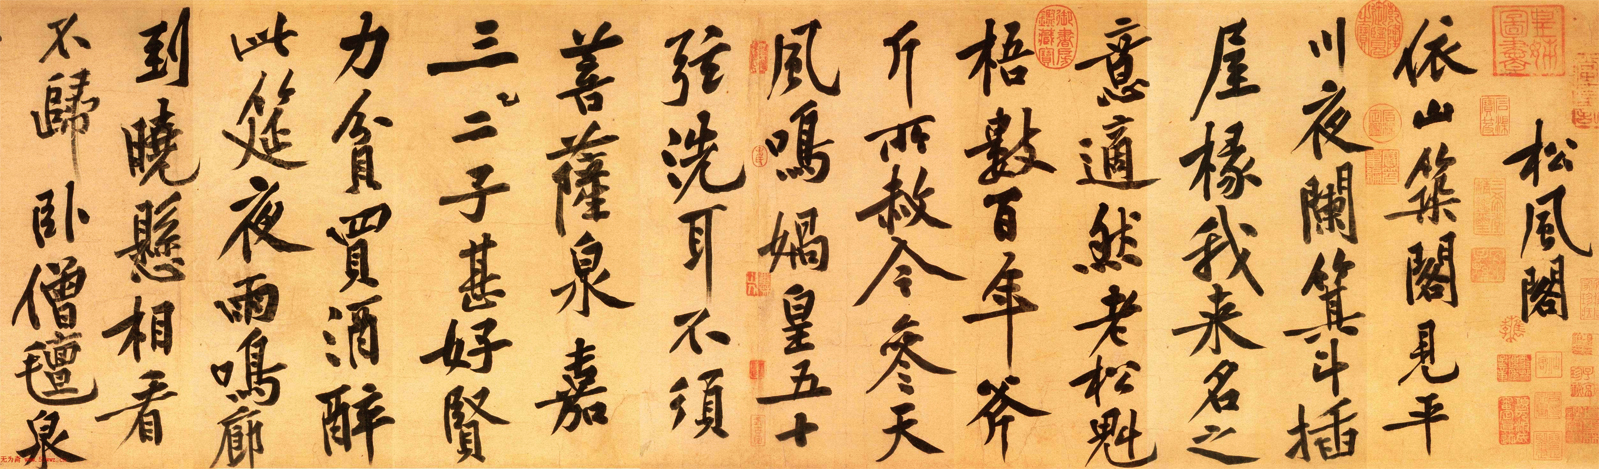 松風閣
依山築閣見平
川夜闌箕斗插
屋椽我来名之
意適然老松魁
梧數百年斧
斤所赦今參天
風鳴媧皇五十
弦洗耳不須
菩薩泉嘉
三二子甚好賢
力貧買酒醉
此筵夜雨鳴廊
到曉懸相看
不歸卧僧氈泉
皇姊圖書
御書房鑑藏寶